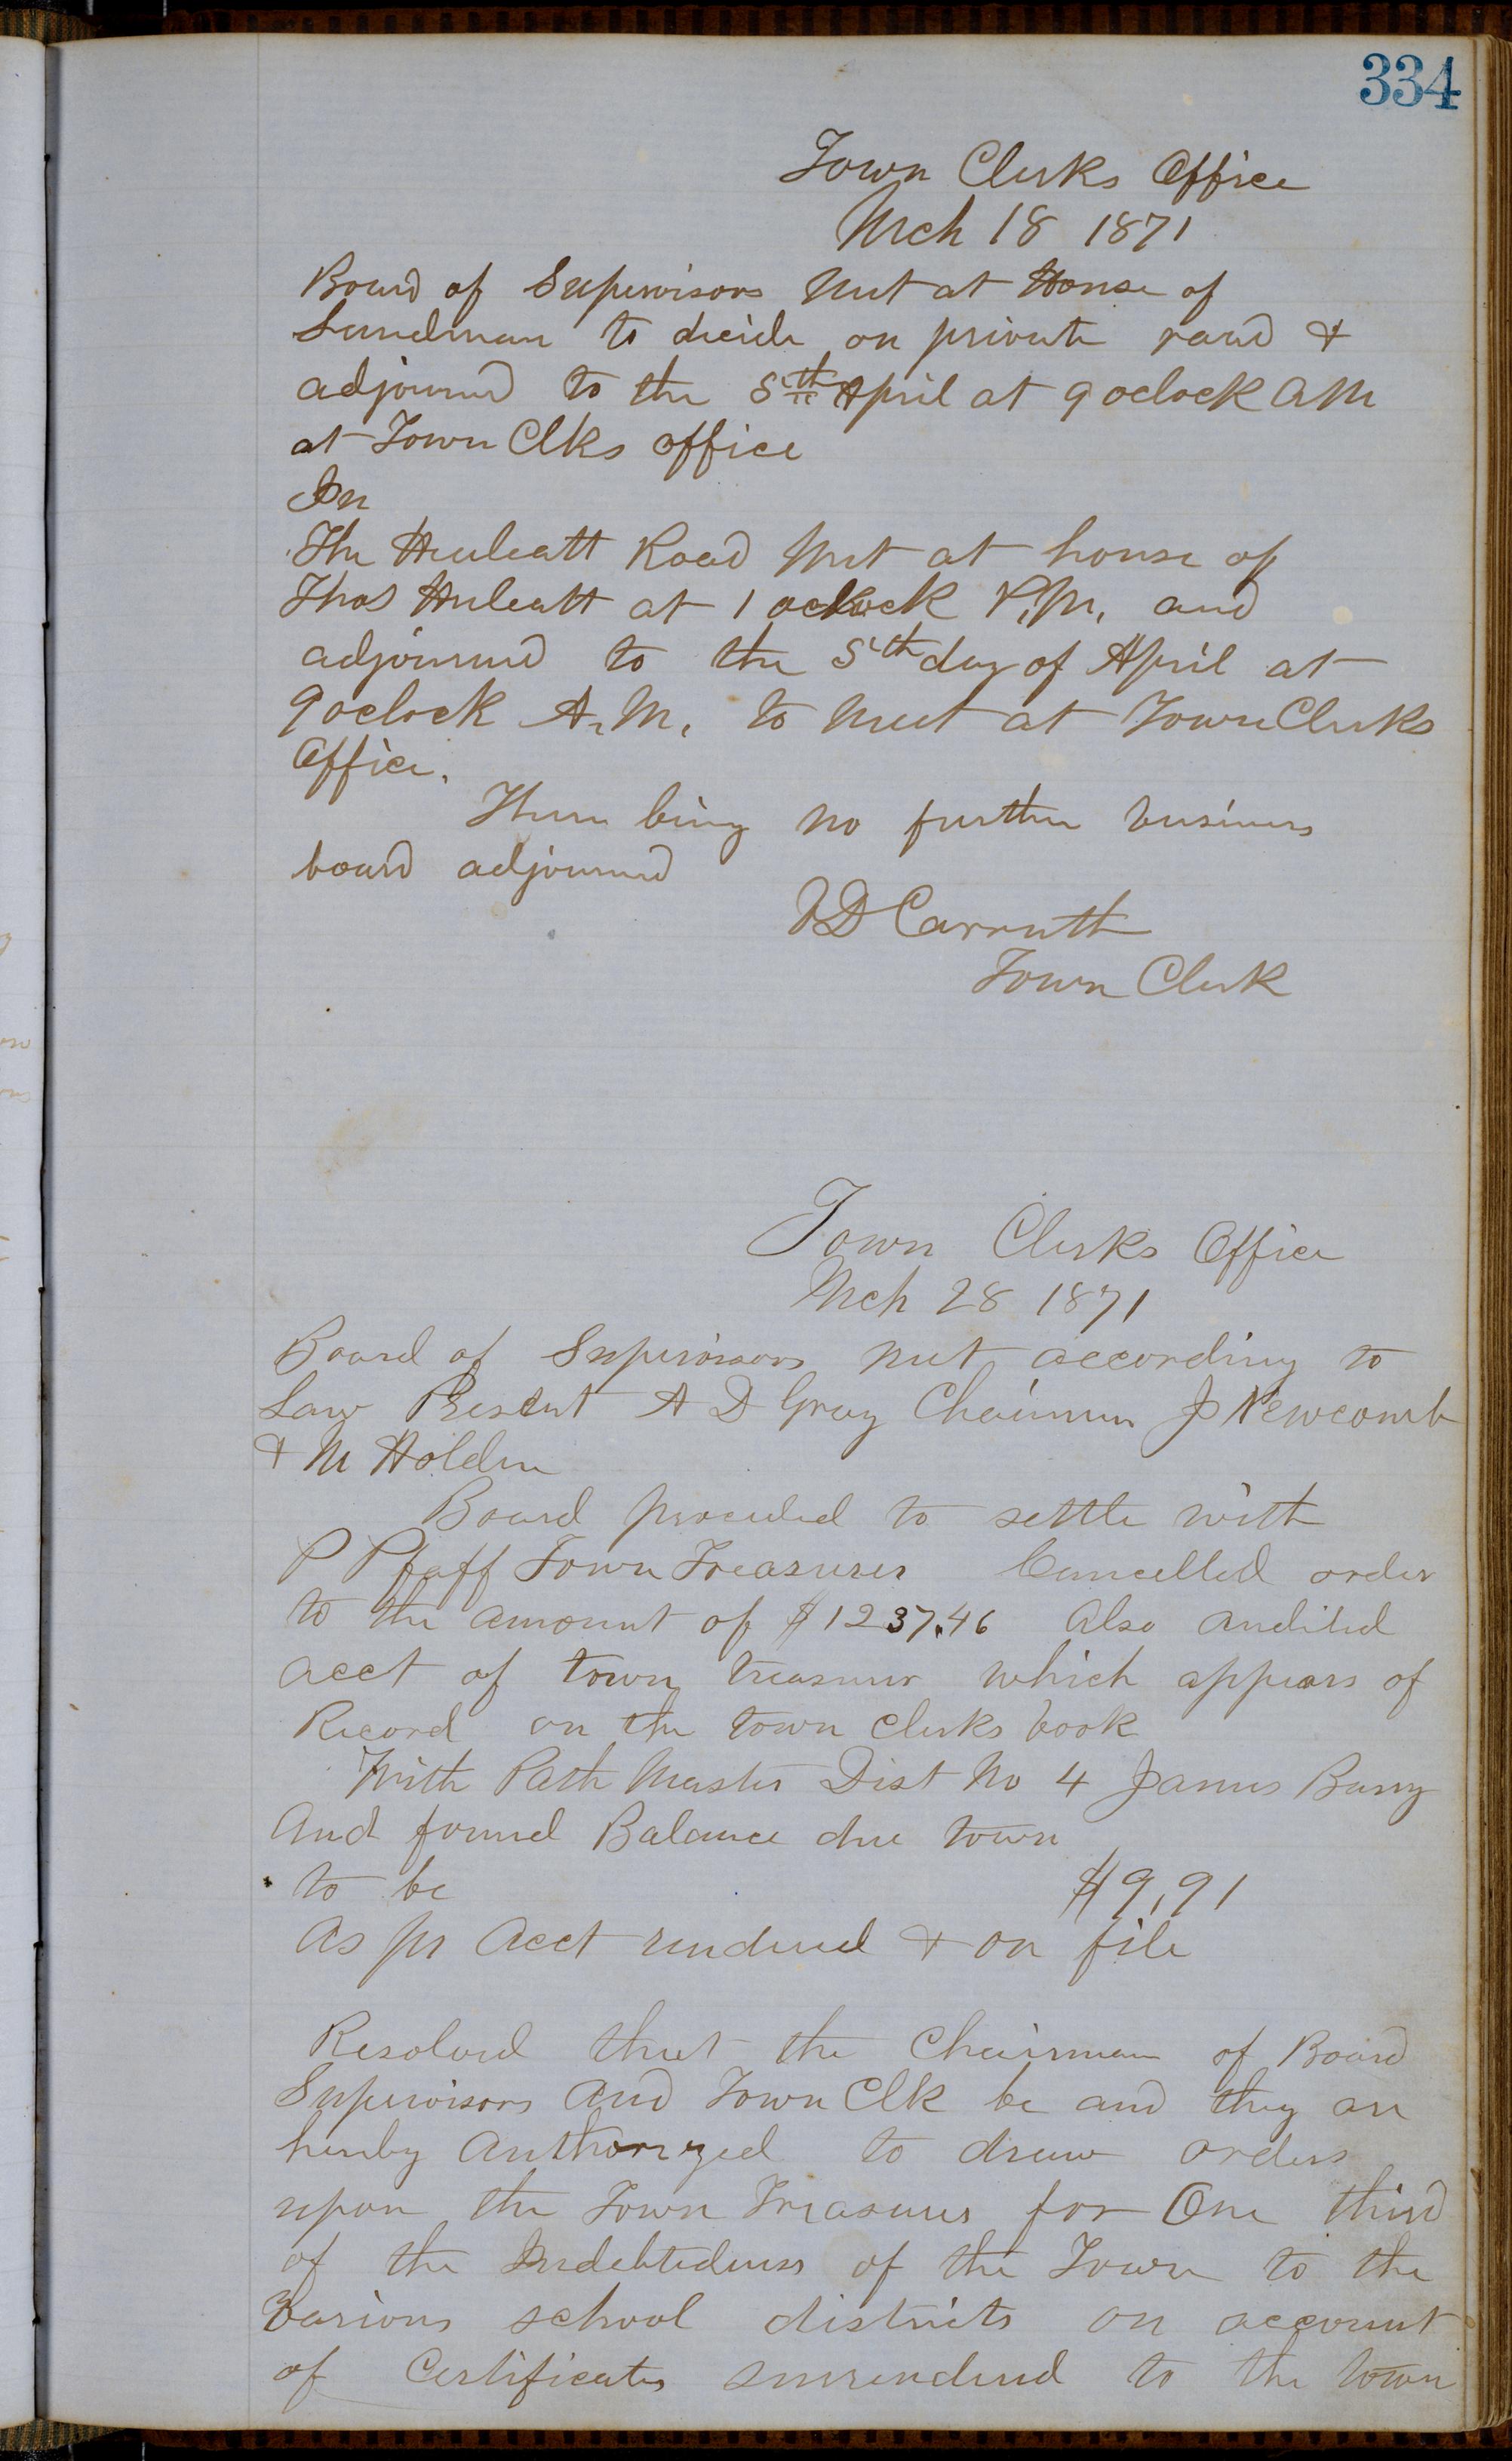 334
Town Clerks Office
Mch 18 1871
Board of Supervisors met at House of
Sundman to decide on private road &
adjourned to the 5th April at 9 oclock AM
at Town Clks office
In
The Huleatt Road Met at house of
Thos Huleatt at 1 oclock P.M. and
adjourned to the 5th day of April at
9 oclock A.M. to meet at Town Clerks
Office.
There being no further business
board adjourned
D Carruth
Town Clerk
Town Clerks Office
Mch 28 1871
Board of Supervisors met according to
Law Present A D Gray Chairman J Newcomb
& M Holden
Board proceeded to settle with
P Pfaff Town Treasurer Cancelled order
to the amount of $1237.46 Also audited
acct of town treasurer which appears of
Record on the town clerks book
With Path Master Dist No 4 James Barry
And found Balance due town
to be $9,91
As pr Acct rendered & on file
Resolved that the Chairman of Board
Supervisors And Town Clk be and they are
hereby Authorized to draw orders
upon the Town Treasurer for One third
of the Indebtedness of the Town to the
various school districts on account
of Certificates surrendered to the town